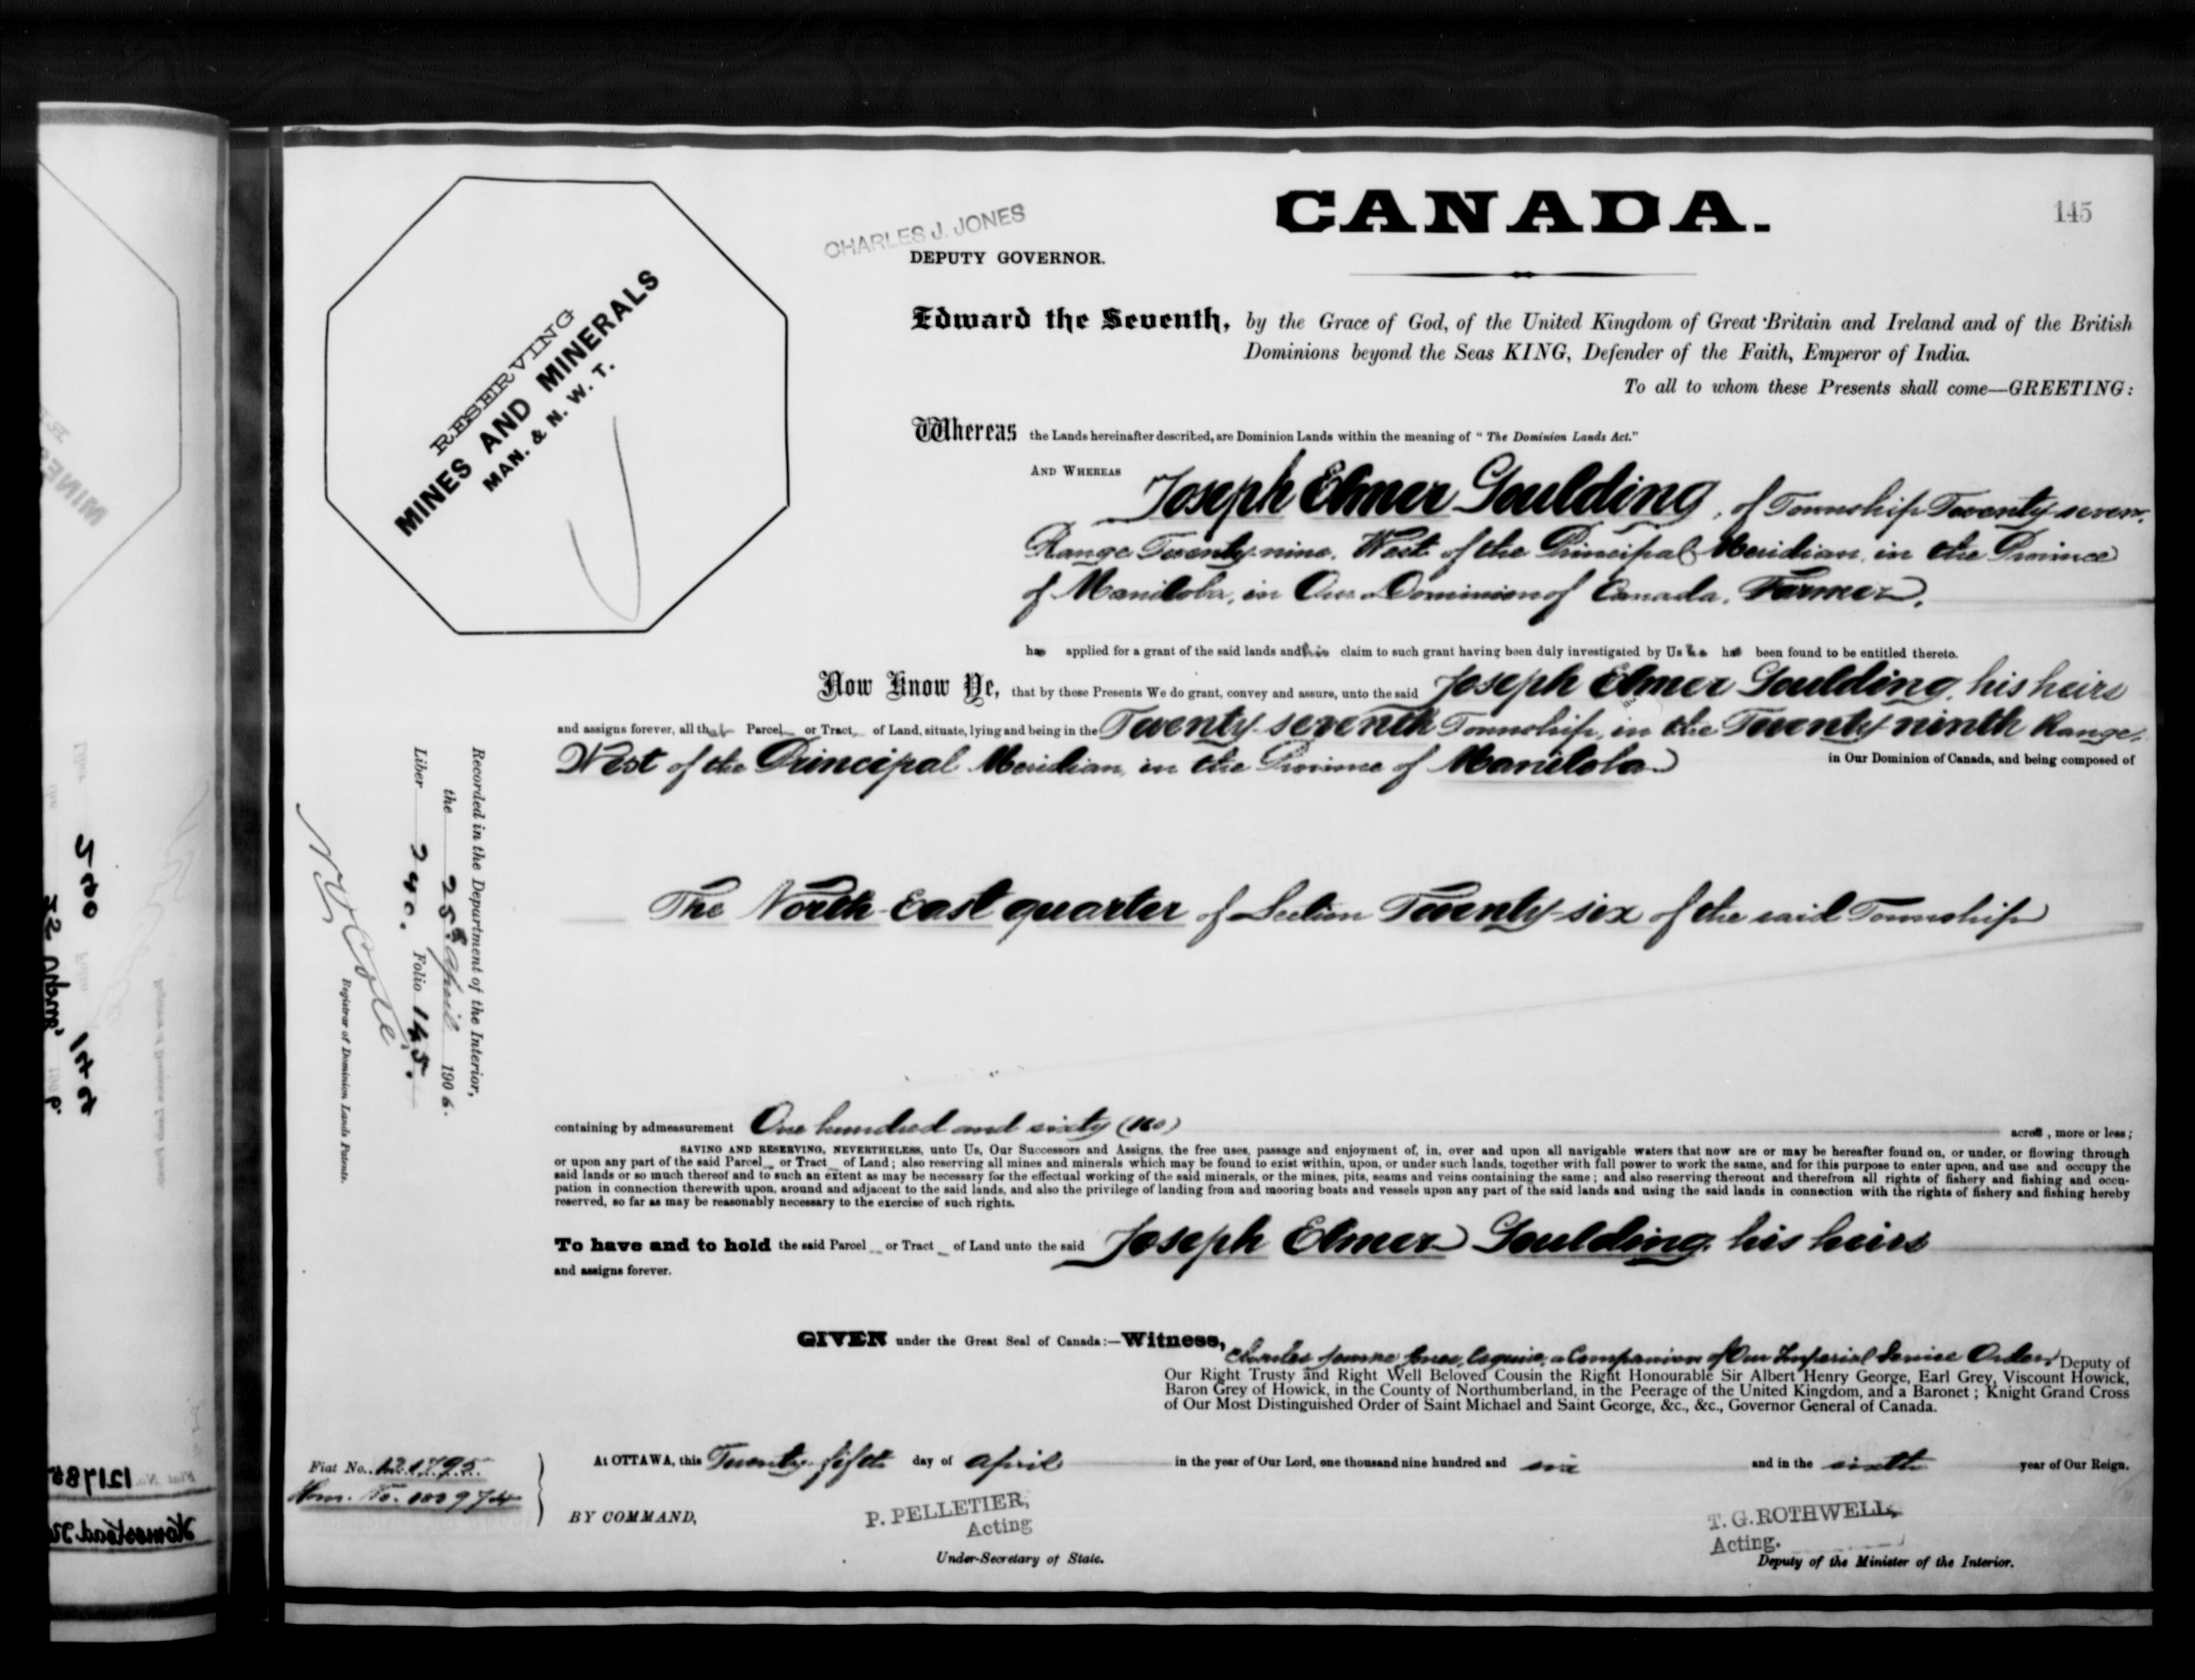 CANADA.
145
CHARLES J. JONES
DEPUTY GOVERNOR.
RESERVING
MINES AND MINERALS
MAN. & N. W. T.
Edward the Seventh, by the Grace of God, of the United Kingdom of Great Britain and Ireland and of the British
Dominions beyond the Seas KING, Defender of the Faith, Emperor of India.
To all to whom these Presents shall come—GREETING:
Whereas the Lands hereinafter described, are Dominion Lands within the meaning of "The Dominion Lands Act."
AND WHEREAS Joseph Elmer Goulding, of Township Twenty-seven,
Range Twenty-nine, West of the Principal Meridian, in the Province
of Manitoba, in Our Dominion of Canada, Farmer,
has applied for a grant of the said lands and his claim to such grant having been duly investigated by Us he has been found to be entitled thereto.
Now Know Ye, that by these Presents We do grant, convey and assure, unto the said Joseph Elmer Goulding, his heirs
and assigns forever, all that Parcel or Tract of Land, situate, lying and being in the Twenty-seventh Township, in the Twenty-ninth Range,
West of the Principal Meridian, in the Province of Manitoba in Our Dominion of Canada, and being composed of
The North-East quarter of Section Twenty-six of the said Township
containing by admeasurement One hundred and sixty (160) acres, more or less;
SAVING AND RESERVING, NEVERTHELESS, unto Us, Our Successors and Assigns, the free uses, passage and enjoyment of, in, over and upon all navigable waters that now are or may be hereafter found on, or under, or flowing through
or upon any part of the said Parcel or Tract of Land; also reserving all mines and minerals which may be found to exist within, upon, or under such lands, together with full power to work the same, and for this purpose to enter upon, and use and occupy the
said lands or so much thereof and to such an extent as may be necessary for the effectual working of the said minerals, or the mines, pits, seams and veins containing the same; and also reserving thereout and therefrom all rights of fishery and fishing and occu-
pation in connection therewith upon, around and adjacent to the said lands, and also the privilege of landing from and mooring boats and vessels upon any part of the said lands and using the said lands in connection with the rights of fishery and fishing hereby
reserved, so far as may be reasonably necessary to the exercise of such rights.
To have and to hold the said Parcel or Tract of Land unto the said Joseph Elmer Goulding, his heirs
and assigns forever.
GIVEN under the Great Seal of Canada:—Witness, Charles Jones, Esquire, a Companion of Our Imperial Service Order, Deputy of
Our Right Trusty and Right Well Beloved Cousin the Right Honourable Sir Albert Henry George, Earl Grey, Viscount Howick,
Baron Grey of Howick, in the County of Northumberland, in the Peerage of the United Kingdom, and a Baronet; Knight Grand Cross
of Our Most Distinguished Order of Saint Michael and Saint George, &c., &c., Governor General of Canada.
At OTTAWA, this Twenty-fifth day of April in the year of Our Lord, one thousand nine hundred and six and in the sixth year of Our Reign.
BY COMMAND,
P. PELLETIER,
Acting
Under-Secretary of State.
T. G. ROTHWELL,
Acting.
Deputy of the Minister of the Interior.
Fiat No. 121795
Recorded in the Department of the Interior,
the 25th April 1906.
Liber 240. Folio 145.
Registrar of Dominion Lands Patents.